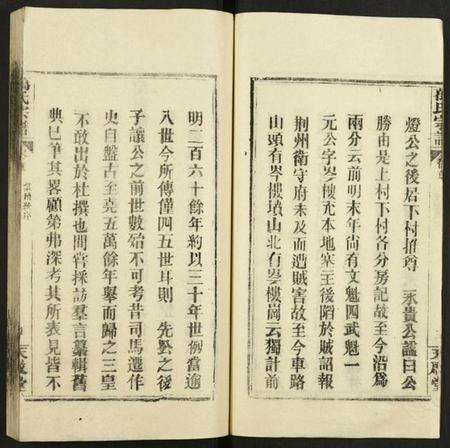 燈公之後居下村推尊　永貴公謚曰公
勝由是上村下村各分房記故至今沿爲
兩分云前明末年尚有文魁四武魁一
元公字岑樓充本地寨主後陷於賊詔報
荆州衛守府未及而遭賊害故至今車路
山頭有岑樓墳山北有岑樓崗云獨計前
明二百六十餘年約以三十年世例當逾
八世今所傳僅四五世耳則　先公之後
子讓公之前世數殆不可考昔司馬遷作
史自盤古至堯五萬餘年舉而歸之三皇
不敢出於杜撰也間嘗採訪羣言纂輯舊
典已筆其畧顧第弗深考其所表見皆不
氏宗譜
天啟堂